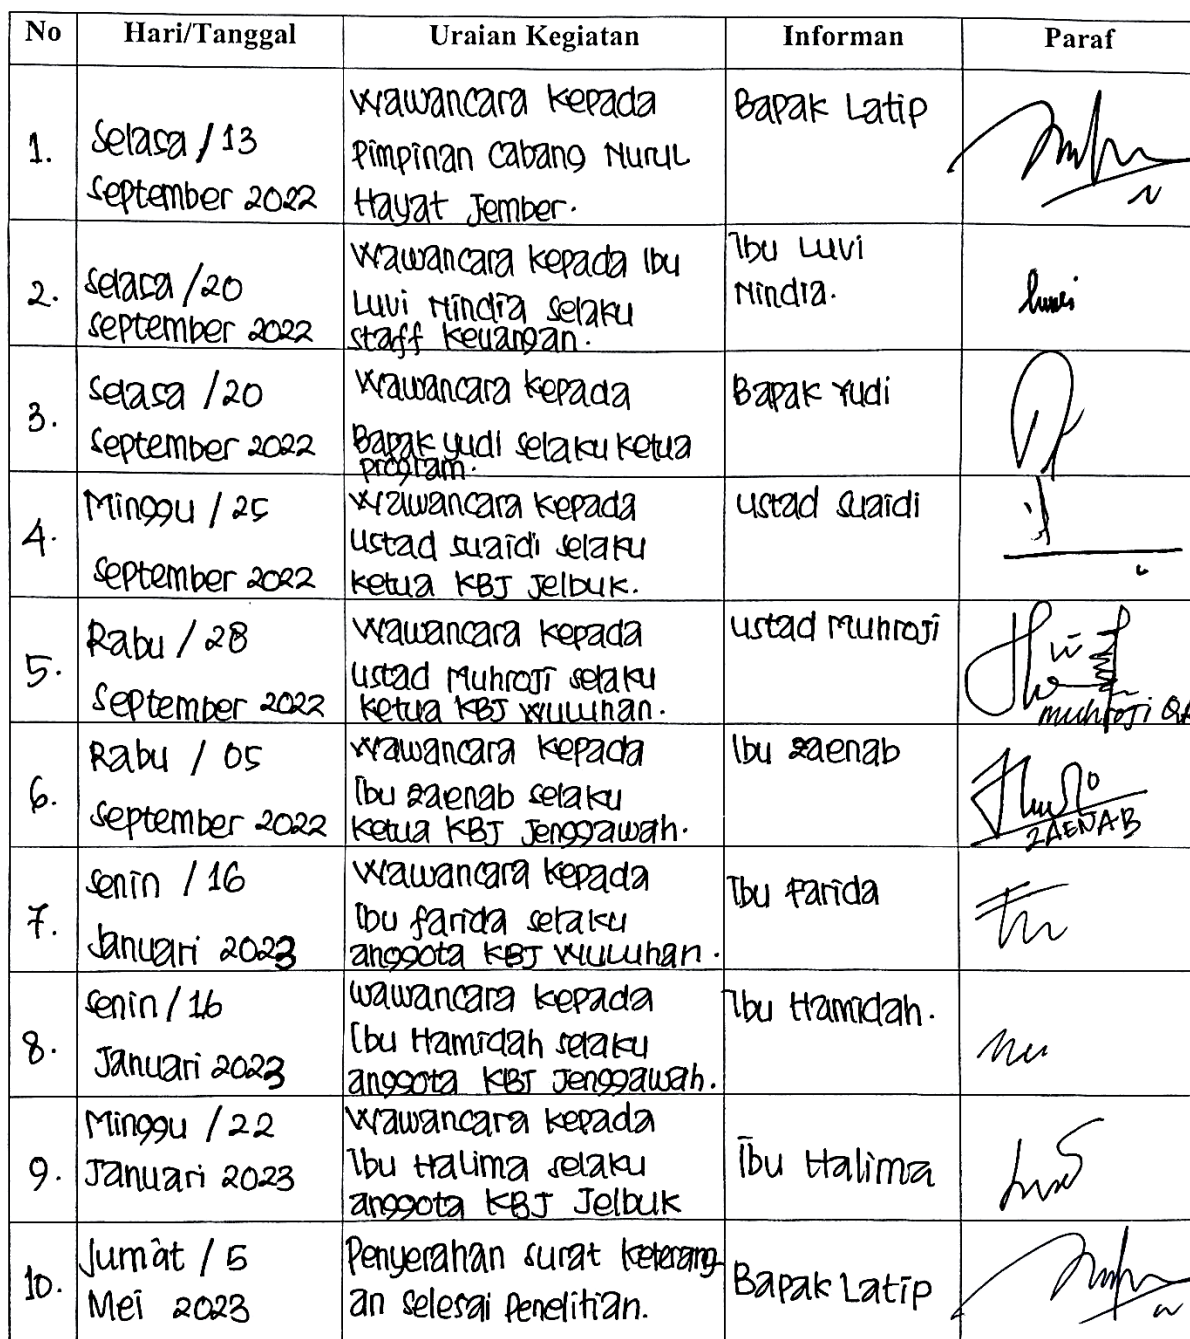 No Hari/Tanggal Uraian Kegiatan Informan Paraf
1. Selasa / 13 September 2022
Wawancara kepada
Pimpinan Cabang Nurul
Hayat Jember.
Bapak Latip
2. Selasa / 20
September 2022
Wawancara kepada Ibu
Luvi Nindia selaku
staff keuangan.
Ibu Luvi
Nindia.
luvi
3. Selasa / 20
September 2022
Wawancara kepada
Bapak yudi selaku ketua
program.
Bapak Yudi
4. Minggu / 25
September 2022
Wawancara kepada
Ustad Suaidi selaku
ketua KBJ Jelbuk.
Ustad Suaidi
5. Rabu / 28
September 2022
Wawancara kepada
Ustad Muhroji selaku
ketua KBJ Wuluhan.
Ustad Muhroji
muhroji
6. Rabu / 05
September 2022
Wawancara kepada
Ibu Zaenab selaku
ketua KBJ Jenggawah.
Ibu Zaenab
ZAENAB
7. Senin / 16
Januari 2023
Wawancara kepada
Ibu farida selaku
anggota KBJ Wuluhan.
Ibu Farida
8. Senin / 16
Januari 2023
Wawancara kepada
Ibu Hamidah selaku
anggota KBJ Jenggawah.
Ibu Hamidah.
9. Minggu / 22
Januari 2023
Wawancara kepada
Ibu Halima selaku
anggota KBJ Jelbuk
Ibu Halima
10. Jumat / 5
Mei 2023
Penyerahan surat keterang
an selesai Penelitian.
Bapak Latip